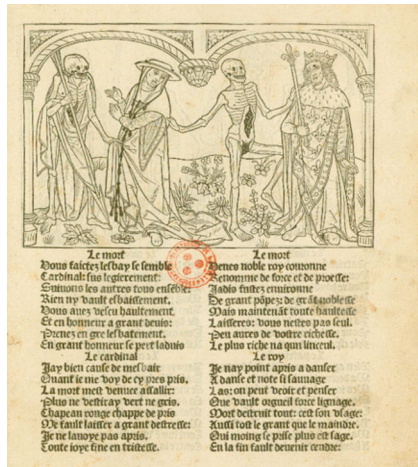 Le mort
Vous faictez lesbay se semble
Cardinal: sus legierement:
Suiuons les autres tous ensẽble:
Rien ny vault esbaissement.
Vous auez vescu haultement.
Et en honneur a grant deuis:
Prenez en gre lesbatement.
En grant honneur se pert laduis
Le cardinal
Jay bien cause de mesbair
Quant ie me voy de cy pres pris.
La mort mest venuee assallir:
Plus ne vestiray vert ne gris.
Chapeau rouge chappe de pris
Me fault laisser a grant destresse:
Je ne lauoye pas apris.
Toute ioye fine en tristesse.
Le mort
Venes noble roy couronne
Renomme de force et de proesse:
Jadis fustez enuironne
De grant põpez: de grãt noblesse
Mais maintenãt toute haultesse
Laisseres: vous nestes pas seul.
Peu aures de vostre richesse.
Le plus riche na qun linceul.
Le roy
Je nay point apris a danser
A danse et note si sauuage
Las: on peut veoir et penser
Que vault orgueil force lignage.
Mort destruit tout: cest son vsage:
Aussi tost le grant que le maindre.
Qui moing se prise plus est sage.
En la fin fault deuenir cendre: